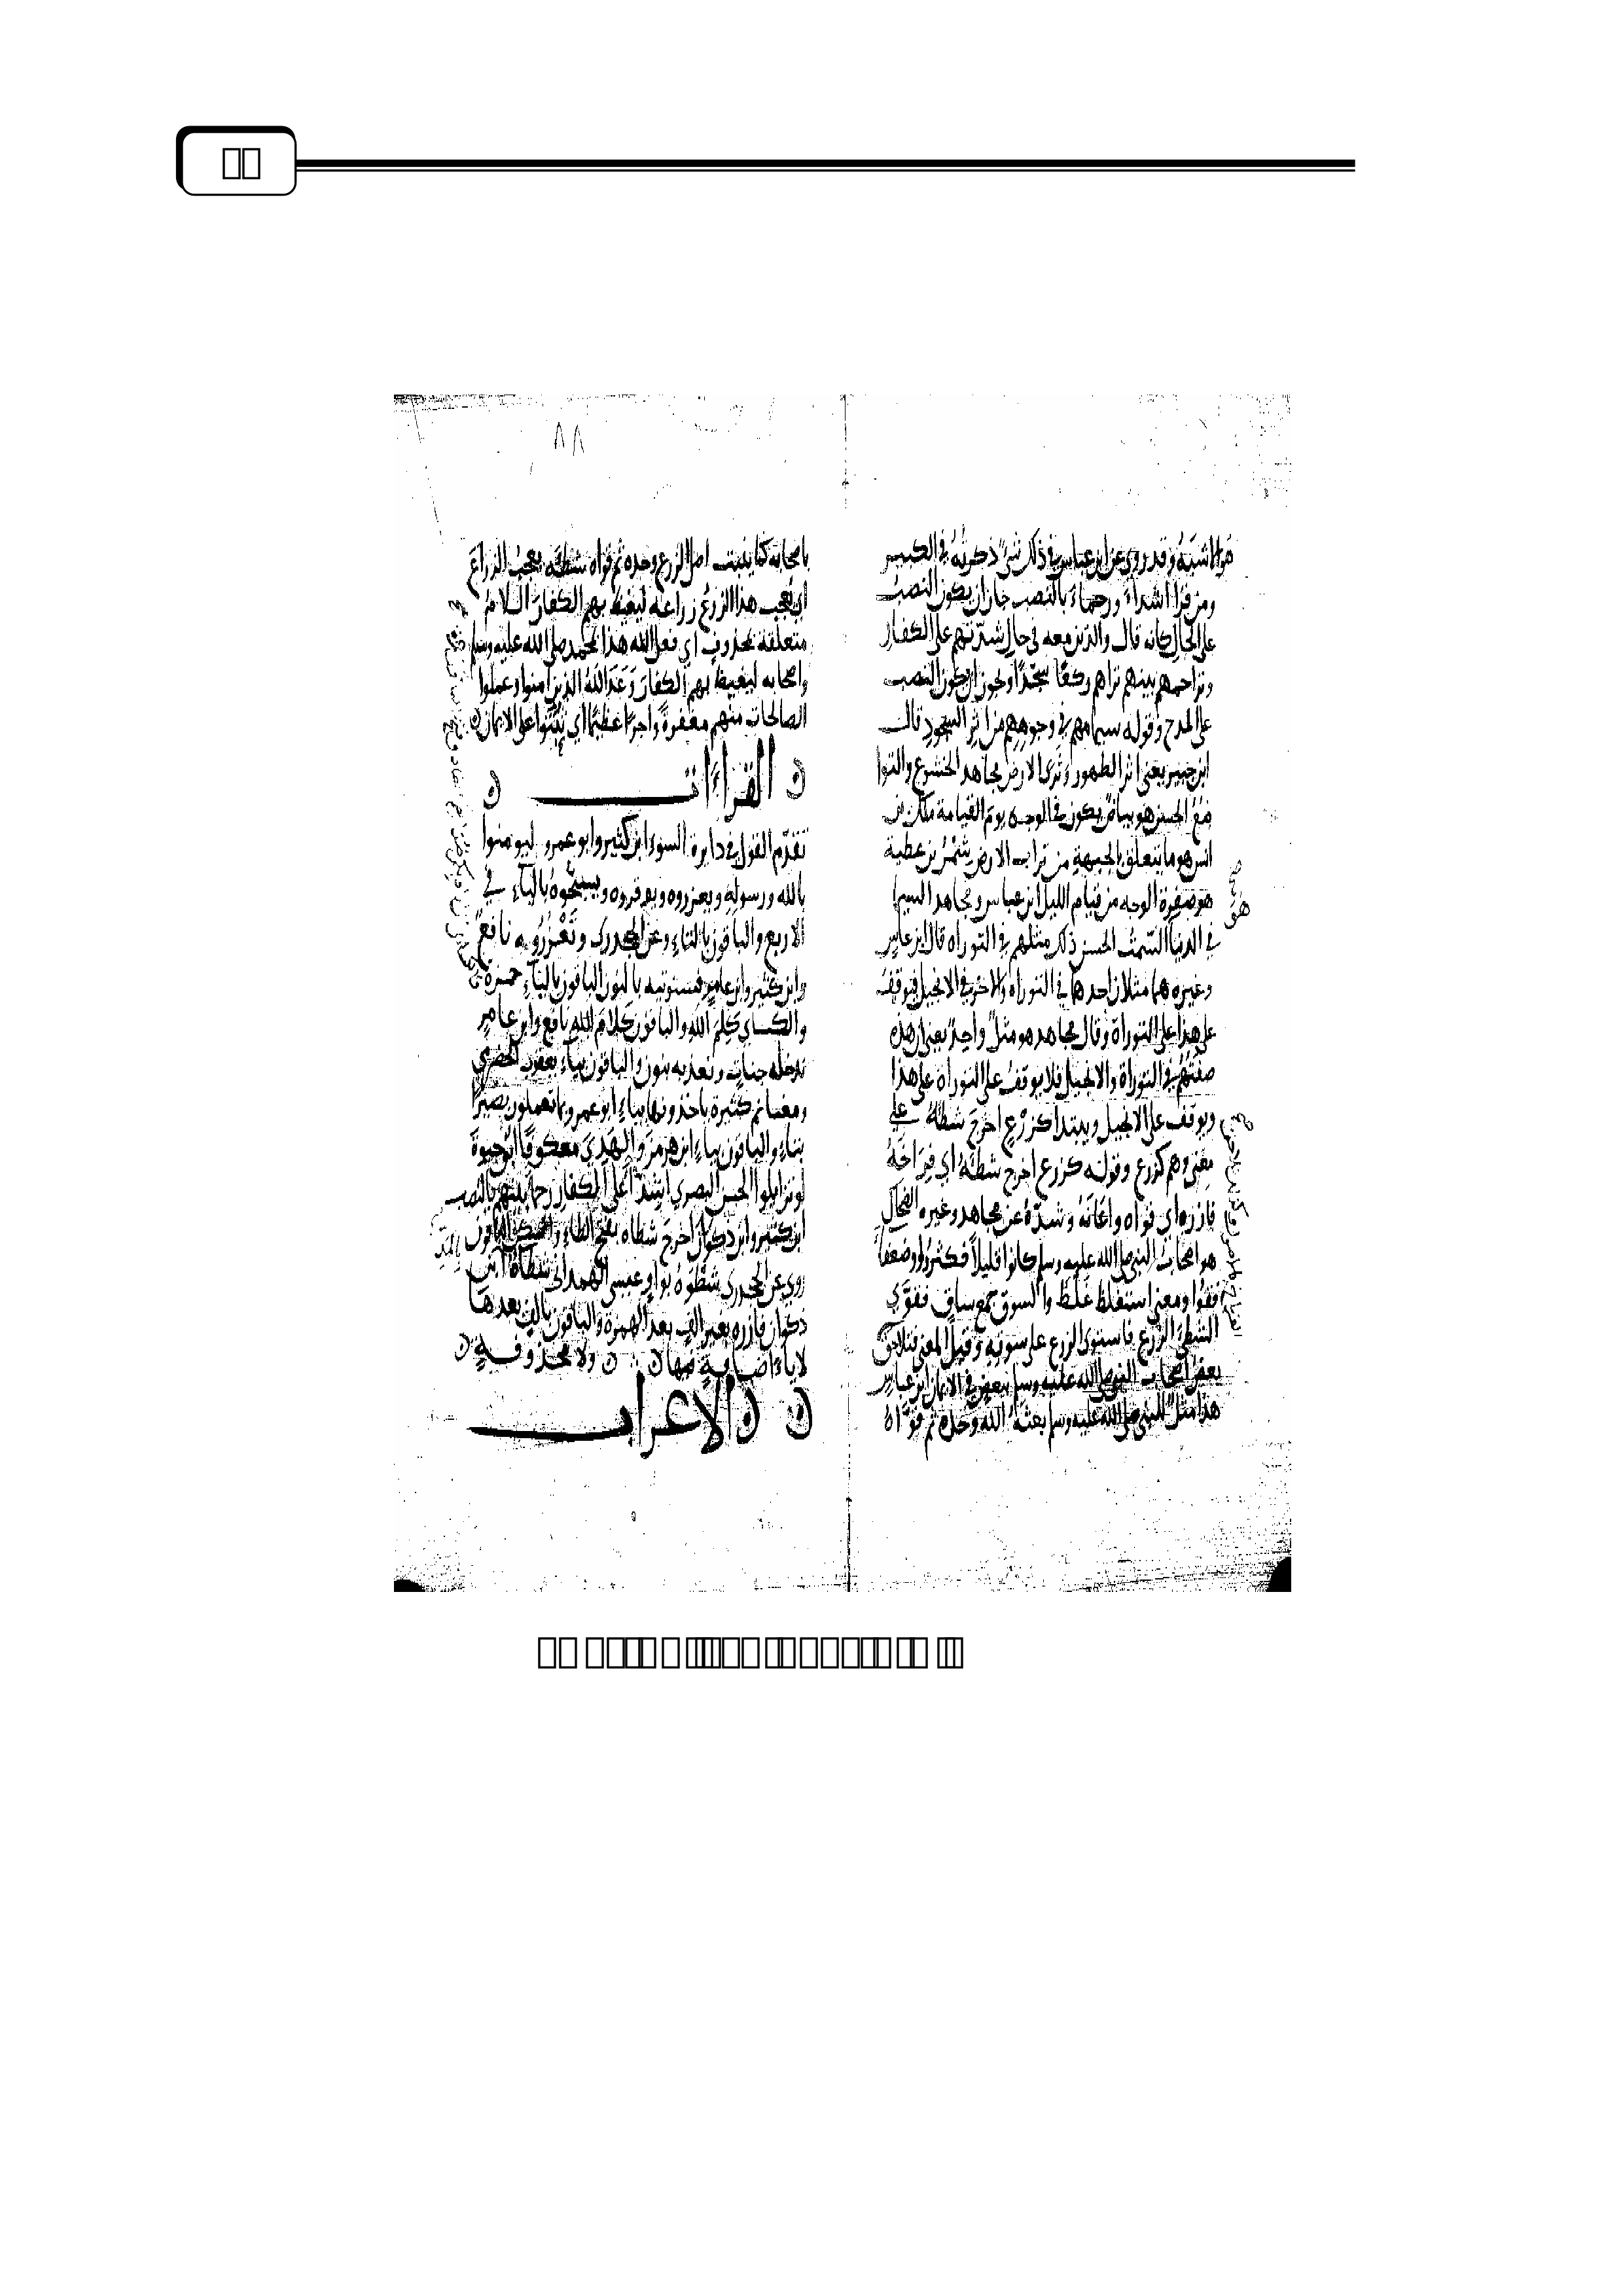 ٨٨
هو اشبه وقد روي عن ابن عباس في ذلك شئ ذكرته في الكبير
ومن قرا اشداءَ ورحماءَ بالنصب جاز ان يكون النصب
على الحال كانه قال والذين معه في حال شدتهم على الكفار
وتراحمهم بينهم تراهم ركعًا سجّدًا ويجوز ان يكون النصب
على المدح وقوله سيماهم في وجوههم من اثر السجود قال
ابن جبير يعني اثر الطهور وثرى الارض مجاهد الخشوع والتوا
ضع الحسن هو بياض يكون في الوجه يوم القيامة ملك بن
انس هو ما يتعلق بالجبهة من تراب الارض شمر بن عطية
هو صفرة الوجه من قيام الليل ابن عباس ومجاهد السيما
في الدنيا السمت الحسن ذلك مثلهم في التوراه قال ابن عباس
وغيره هما مثلان احدهما في التوراه والاخر في الانجيل فيوقف
على هذا على التوراة وقال مجاهد هو مثل واحد يعني ان هذه
صفتهم في التوراة والانجيل فلا يوقف على التوراة على هذا
ويوقف على الانجيل ويبتدا كزرع اخرج شطأه على
معنى وهم كزرع وقوله كزرع اخرج شطأه اي فراخه
فازره اي قواه واعانه وشدّه عن مجاهد وغيره الضحاك
هو اصحاب النبي صلى الله عليه وسلم كانوا قليلاً فكثروا وضعفاً
فقووا ومعنى استغلظ غلظ والسوق جمع ساق فقوّي
الشطئ الزرع فاستوى الزرع على سوقه وقيل المعنى فتلاحق
بعض اصحاب النبي صلى الله عليه وسلم ببعض في الايمان ابن عباس
هذا مثل للنبي صلى الله عليه وسلم بعثه الله وحده ثم قوّاه
باصحابه كما ينبت اصل الزرع وحده ثم قواه شطئه يعجب الزراع
اي يعجب هذا الزرع زراعه ليغيظ بهم الكفار اللام
متعلقة بمحذوف اي فعل الله هذا لمحمد صلى الله عليه وسلم
واصحابه ليغيظ بهم الكفار وَعَدَ اللهُ الذين امنوا وعملوا
الصالحات منهم مغفرةً واجرًا عظيمًا اي ثبتوا على الايمان
القراءات
تقدّم القول في دايرة السوء ابن كثير وابو عمرو ليومنوا
بالله ورسوله ويعزروه ويوقروه ويسبحوهُ بالياءِ في
الاربع والباقون بالتاءِ وعن الجحدري وتَعْزُرُوه نافع
وابن كثير وابن عامر فسنوتيه بالنون الباقون بالياءِ حمزة
والكساي كَلِمَ اللهِ والباقون كلامَ اللهِ نافع وابن عامر
ندخله جنات ونعذبه بنون والباقون بياء يعقوب الحضرمي
ومغانم كثيرة ياخذونها بياءِ ابو عمرو بما تعملون بصيرا
بتاءِ والباقون بياءِ ابن هرمز والهَدِيَّ معكوفًا ابو حيوة
لو تزايلوا الحسن البصري اشدّاءَ على الكفار رحماءَ بينهم بالنصب
ابن كثير وابن ذكوان اخرج شطاه بفتح الطاءِ الباقون
روي عن الجحدري شطْوَهُ بواو عيسى الهمداني شطاهُ ابن
ذكوان فازره بغير الف بعد الهمزة والباقون بالف بعدها
لا ياءَ اضافةٍ فيها ولا محذوفةٍ
الاعراب